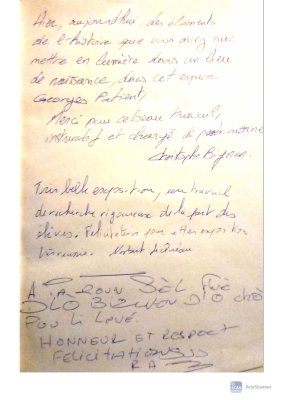 Hier, aujourd'hui, des éléments
de l'histoire que vous avez su
mettre en lumière dans un lieu
de naissance, dans cet espace
Georges Patient,
Merci pour ce beau travail,
instructif et chargé de patrimoine
Christophe
Très belle exposition, un travail
de recherche rigoureuse de la part des
élèves. Félicitations pour cette exposition
A LA ROUN BÈL
DLO DLO
POU LI LAVÉ.
HONNEUR ET RESPECT
FELICITATIONS
RA
AnyScanner